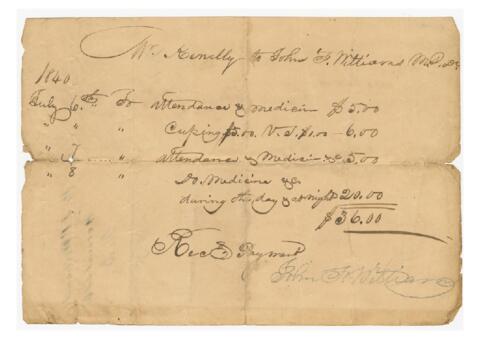 Mr Kenelly to John F. Williams M.D. Dr
1840
July 6th To attendance & medicin $5.00
" " " Cuping $5.00 V.S. $1.00 - 6.00
" 7 " attendance & Medicin &c 5.00
" 8 Do. Medicine &c
during the day & at night 20.00
$36.00
Recd Payment
John F. Williams